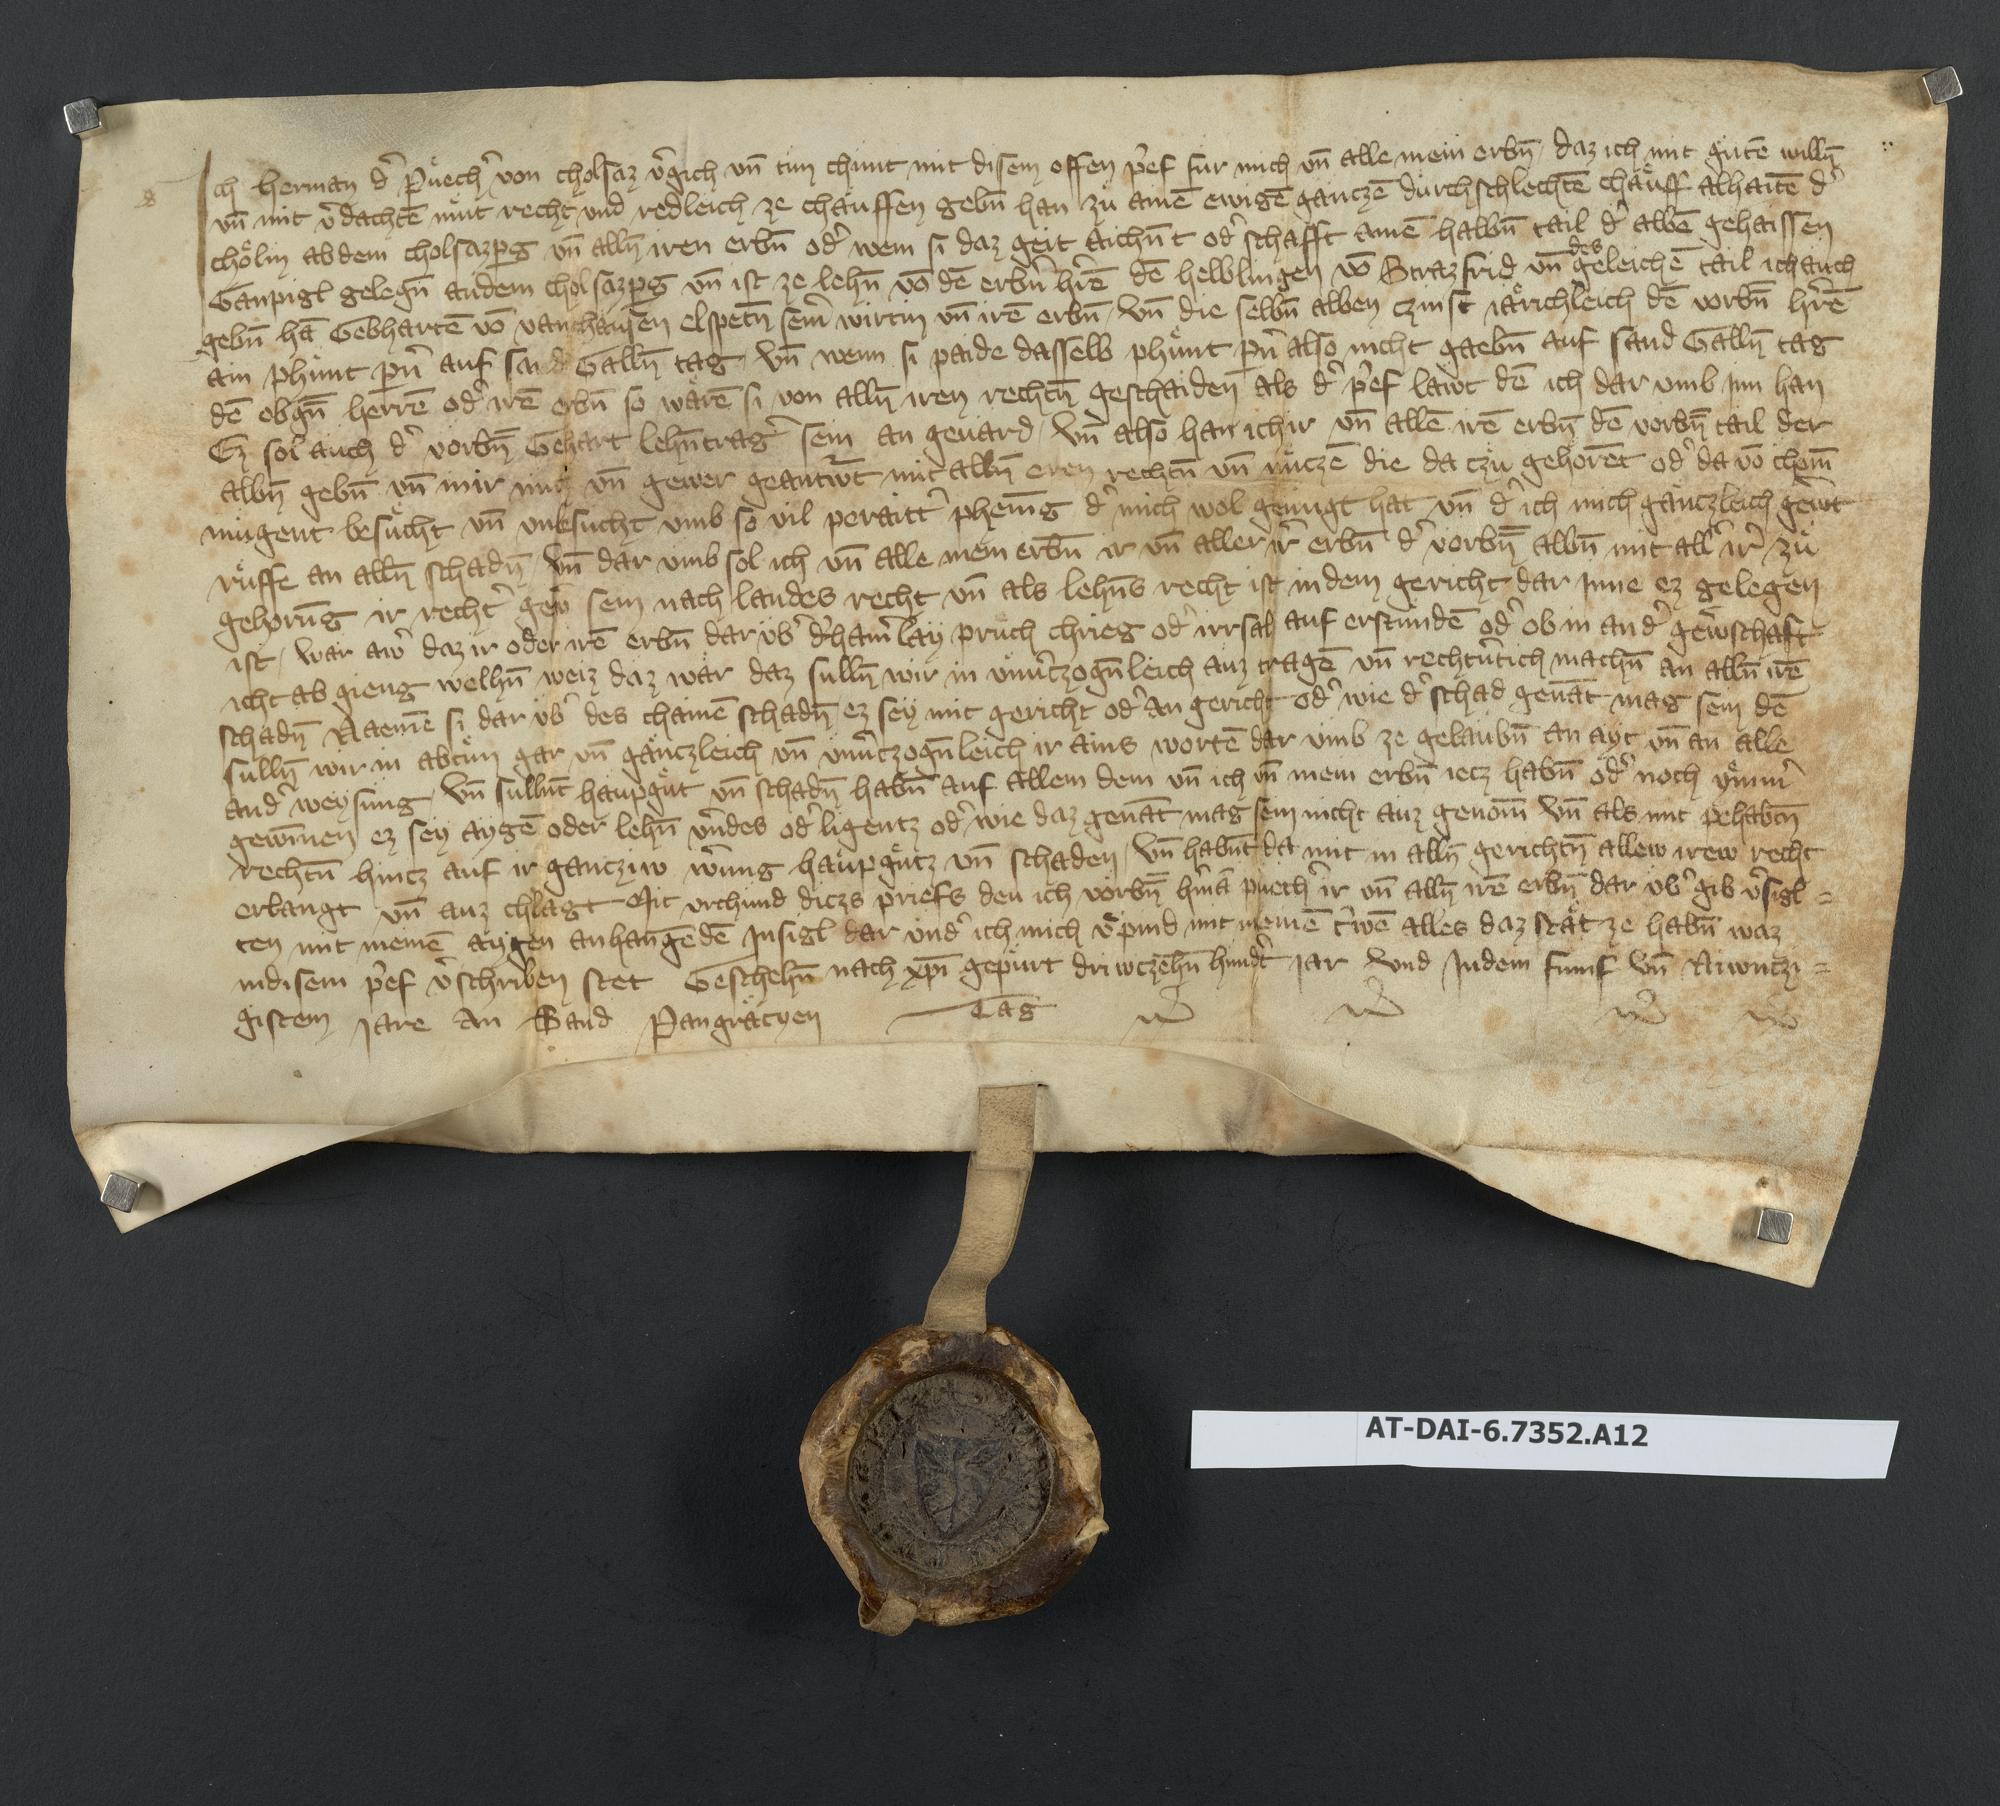 Ich herman d̕ Püech̕ von cholsaz v̕gich vn̄ tün chünt mit disem offen p̕ef für mich vn̄ alle mein erbn̄ daz ich mit gütē willn̄
vn̄ mit v̕dachtē müt recht vnd redleich ze chauffen gebn̄ han zü ainē ewigē ganczē durchschlechtē chauff alhaitē d̕
chölin ab dem cholsazpg vn̄ alln̄ iren erbn̄ od̕ wem si daz geit aichn̄t od̕ schafft ainē halbn̄ tail d̕ albē gehaissen
Gaupigl gelegn̄ an dem cholsazpg vn̄ ist ze lehn̄ vō dē erbn̄ h̕rē dē helblingen vō Strazfrid vn̄ des geleichē tail ich auch
gebn̄ hā Gebhartē vō vanchausen elspetn̄ sein̕ wirtin vn̄ irē erbn̄ vn̄ die selbn̄ alben czinst iärichleich dē vorbn̄ h̕rē
ain phunt pn̕ auf sand Galln̄ tag vn̄ wenn si paide dasselb phunt pn̕ also nicht gaebn̄ auf sand Galln̄ tag
dē obgn̄ herrē od̕ irē erbn̄ so wärē si von alln̄ iren rechtn̄ geschaiden als d̕ p̕ef lawt dē ich dar vmb inn han
Ez sol auch d̕ vorbn̄ Gebhart lehn̄trag̕ sein an geuard vn̄ also han ich ir vn̄ allē irē erbn̄ dē vorbn̄ tail der
albn̄ gebn̄ vn̄ mir nücz vn̄ gewer geantw̕t mit alln̄ eren rechtn̄ vn̄ nüczē die da czü gehorēt od̕ da vō chom̄
mügent besücht vn̄ vnbesücht vmb so vil peraitt̕ phenīg d̕ mich wol genügt hat vn̄ d̕ ich mich gänczleich gew̕t
rüffe an alln̄ schadn̄ vn̄ dar vmb sol ich vn̄ alle mein erbn̄ ir vn̄ aller ir̕ erbn̄ d̕ vorbn̄ albn̄ mit all̕ ir̕ zü
gehorūg ir recht̕ gew̕ sein nach landes recht vn̄ als lehn̄s recht ist in dem gericht dar inne ez gelegen
ist, wär aw̕ daz ir oder irē erbn̄ dar üb̕ d̕hain̕lay prüch chrieg od̕ irrsal auf erstundē od̕ ob in an d̕ gew̕schaft
icht ab gieng welhn̄ weiz daz wär daz sulln̄ wir in vnu̕czogn̄leich auz tragē vn̄ rechtu̕tich machn̄ an alln̄ irē
schadn̄ Naemē si dar üb̕ des chainē schadn̄ ez sey mit gericht od̕ an gericht od̕ wie d̕ schad genāt mag sein dē
sulln̄ wir in abtün gar vn̄ gänczleich vn̄ vnu̕czogn̄leich ir ains wortē dar vmb ze gelaubn̄ an ayt vn̄ an alle
and̕ weysung vn̄ sulln̄t haupgüt vn̄ schadn̄ habn̄ auf allem dem vn̄ ich vn̄ mein erbn̄ iecz habn̄ od̕ noch ÿm̄m̕
gewīnen ez sey aygē oder lehn̄ v̕ndes od̕ ligentz od̕ wie daz genāt mag sein nicht auz genom̄ vn̄ als mit pehabtn̄
rechtn̄ hincz auf ir gancziw w̕ung haupgütz vn̄ schaden vn̄ habn̄t da mit in alln̄ gerichtn̄ allew irew recht
erlangt vn̄ auz chlagt Mit vrchünd diczs priefs den ich vorbn̄ h̕mā püech̕ ir vn̄ alln̄ irē erbn̄ dar üb̕ gib v̕sigl=
ten mit meinē aygen anhangēdē Insigl dar vnd̕ ich mich v̕pind mit meinē t̕wē alles daz stät ze habn̄ waz
in disem p̕ef v̕schriben stet Geschehn̄ nach xp̄i gepürt driwczehn̄ hund̕t iar vnd in dem fumf vn̄ Niwnczi=
gistem iare An Sand Pangräczen Tag
AT-DAI-6.7352.A12